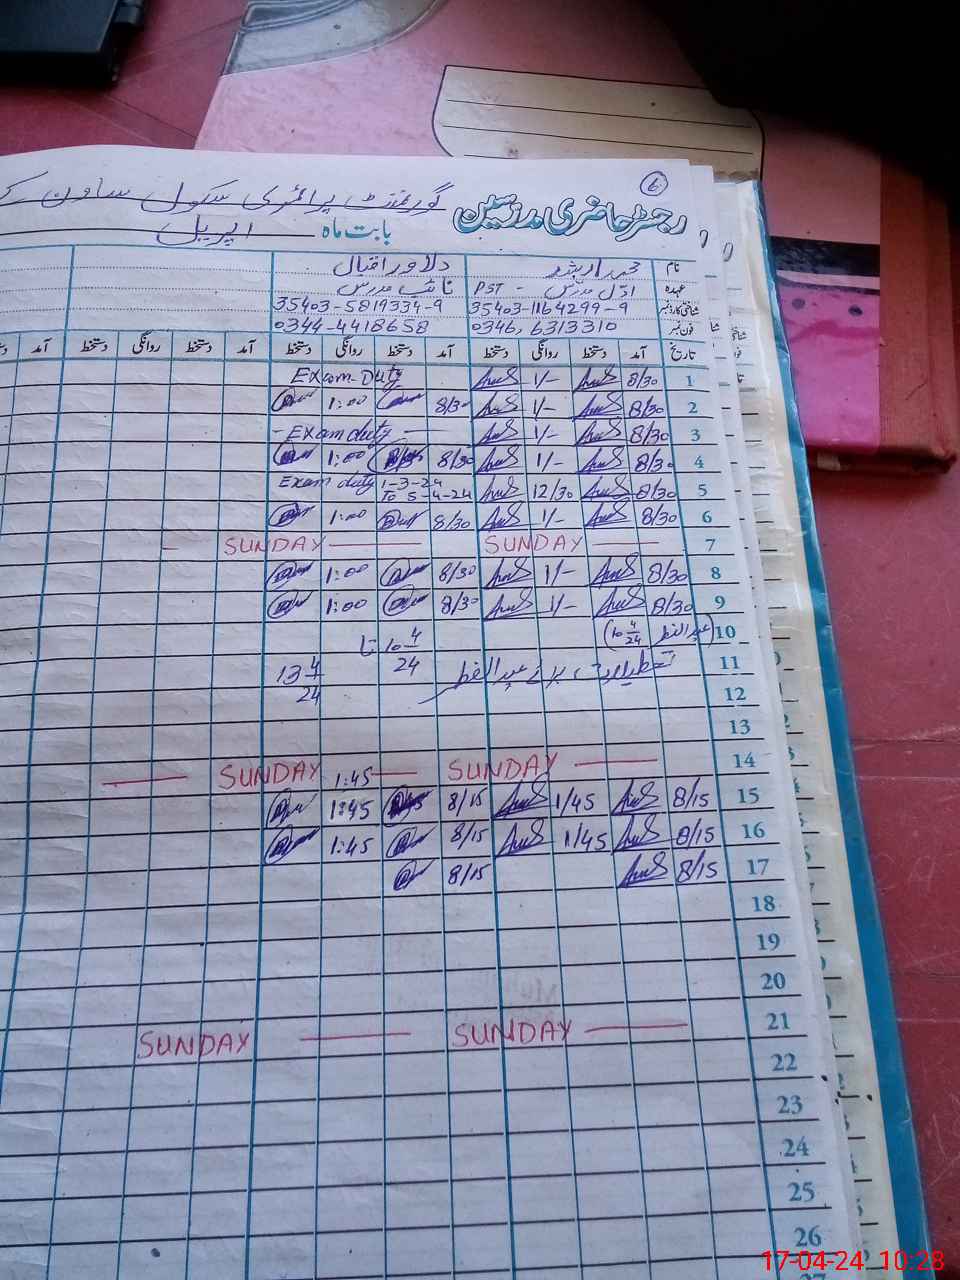 6
رجسٹر حاضری مدرسین گورنمنٹ پرائمری سکول ساون
بابت ماہ اپریل
نام محمد ارشد دلاور اقبال
عہدہ اوّل مدرس - PST نائب مدرس
شناختی کارڈ نمبر 35403-1164299-9 35403-5819334-9
فون نمبر 0346, 6313310 0344-4418658
تاریخ آمد دستخط روانگی دستخط آمد دستخط روانگی دستخط آمد دستخط روانگی دستخط آمد
1 8/30 1/- Exam-Duty
2 8/30 1/- 8/30 1:00
3 8/30 1/- - Exam duty -
4 8/30 1/- 8/30 1:00
5 8/30 12/30 Exam duty 1-3-24 To 5-4-24
6 8/30 1/- 8/30 1:00
7 SUNDAY SUNDAY
8 8/30 1/- 8/30 1:00
9 8/30 1/- 8/30 1:00
10 (عید الفطر 10 4/24) 10 4/24 تا
11 تعطیلات برائے عید الفطر 13 4/24
12
13
14 SUNDAY SUNDAY 1:45
15 8/15 1/45 8/15 1:45
16 8/15 1/45 8/15 1:45
17 8/15 8/15
18
19
20
21 SUNDAY SUNDAY
22
23
24
25
26
17-04-24 10:28